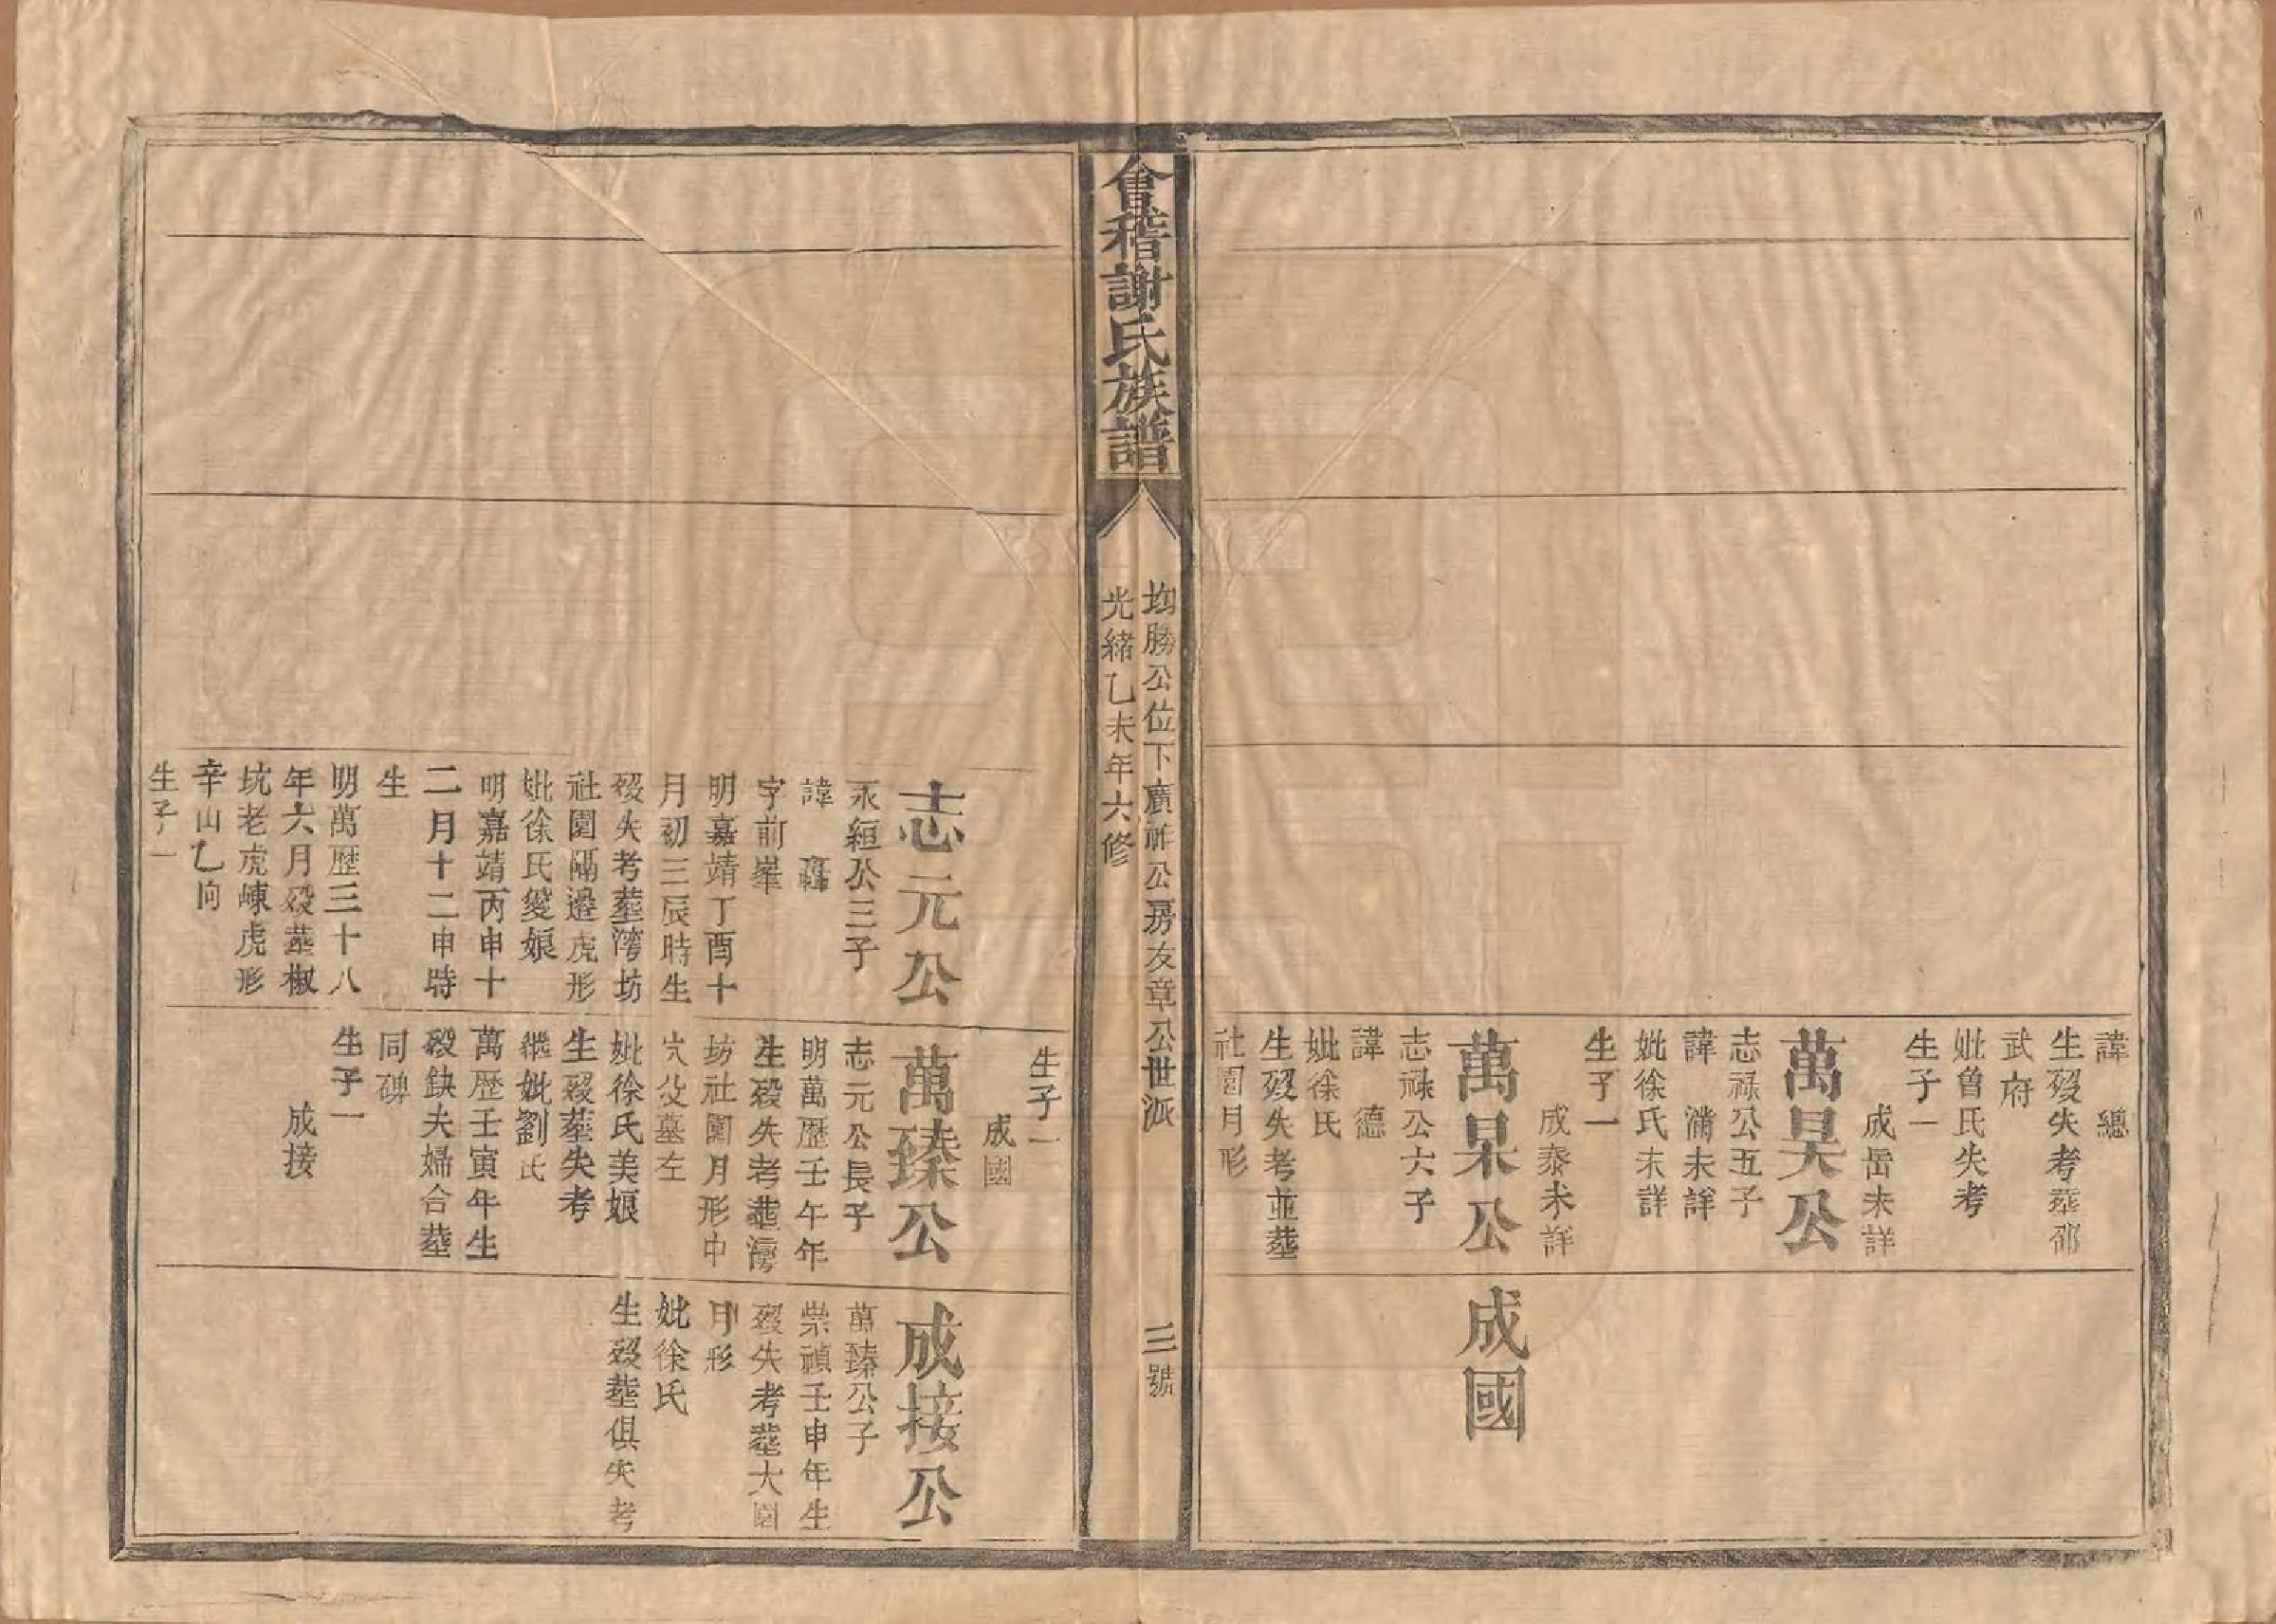 諱 總
生殁失考塟邵
武府
妣曾氏失考
生子一
成岳未詳
萬昊公
志祿公五子
諱 滿未詳
妣徐氏未詳
生子一
成泰未詳
萬杲公
志祿公六子
諱 德
妣徐氏
生殁失考並塟
社園月形
成國
會稽謝氏族譜
均勝公位下廣祚公房友章公世派
三號
光緒乙未年六修
志元公
永絙公三子
諱
字前峯
明嘉靖丁酉十
月初三辰時生
殁失考塟湾坊
社園隔邉虎形
妣徐氏愛娘
明嘉靖丙申十
二月十二申時
生
明萬歷三十八
年六月殁塟椒
坑老虎崠虎形
辛山乙向
生子一
生子一
成國
萬臻公
志元公長子
明萬歷壬午年
生殁失考塟湾
坊社園月形中
穴父墓左
妣徐氏美娘
生殁塟失考
繼妣劉氏
萬歷壬寅年生
殁缺夫婦合塟
同碑
生子一
成接
成接公
萬臻公子
崇禎壬申年生
殁失考塟大園
月形
妣徐氏
生殁塟俱失考